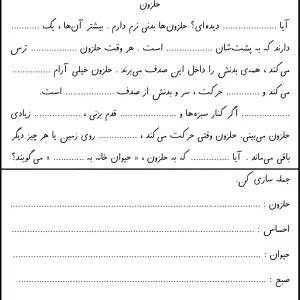 حلزون
آیا .................. دیده‌ای؟ حلزون‌ها بدنی نرم دارم . بیشتر آن‌ها ، یک ..........
دارند که به پشت‌شان ............... است . هر وقت حلزون ............... ترس
می‌کند ، همه‌ی بدنش را داخل این صدف می‌برند . حلزون خیلی آرام .............
می‌کند و ............ حرکت ، سر و بدنش از صدف ................ است.
................ اگر کنار سبزه‌ها و ................ قدم بزنی ، ............... زیادی
حلزون می‌بینی. حلزون وقتی حرکت می‌کند ، ............... روی زمین یا هر چیز دیگر
باقی می‌ماند . آیا ............... که به حلزون ، « حیوان خانه به ............ » می‌گویند؟
جمله سازی کن.
حلزون : ..........................................................................................
احساس : ..........................................................................................
حیوان : ..........................................................................................
صبح : ..........................................................................................